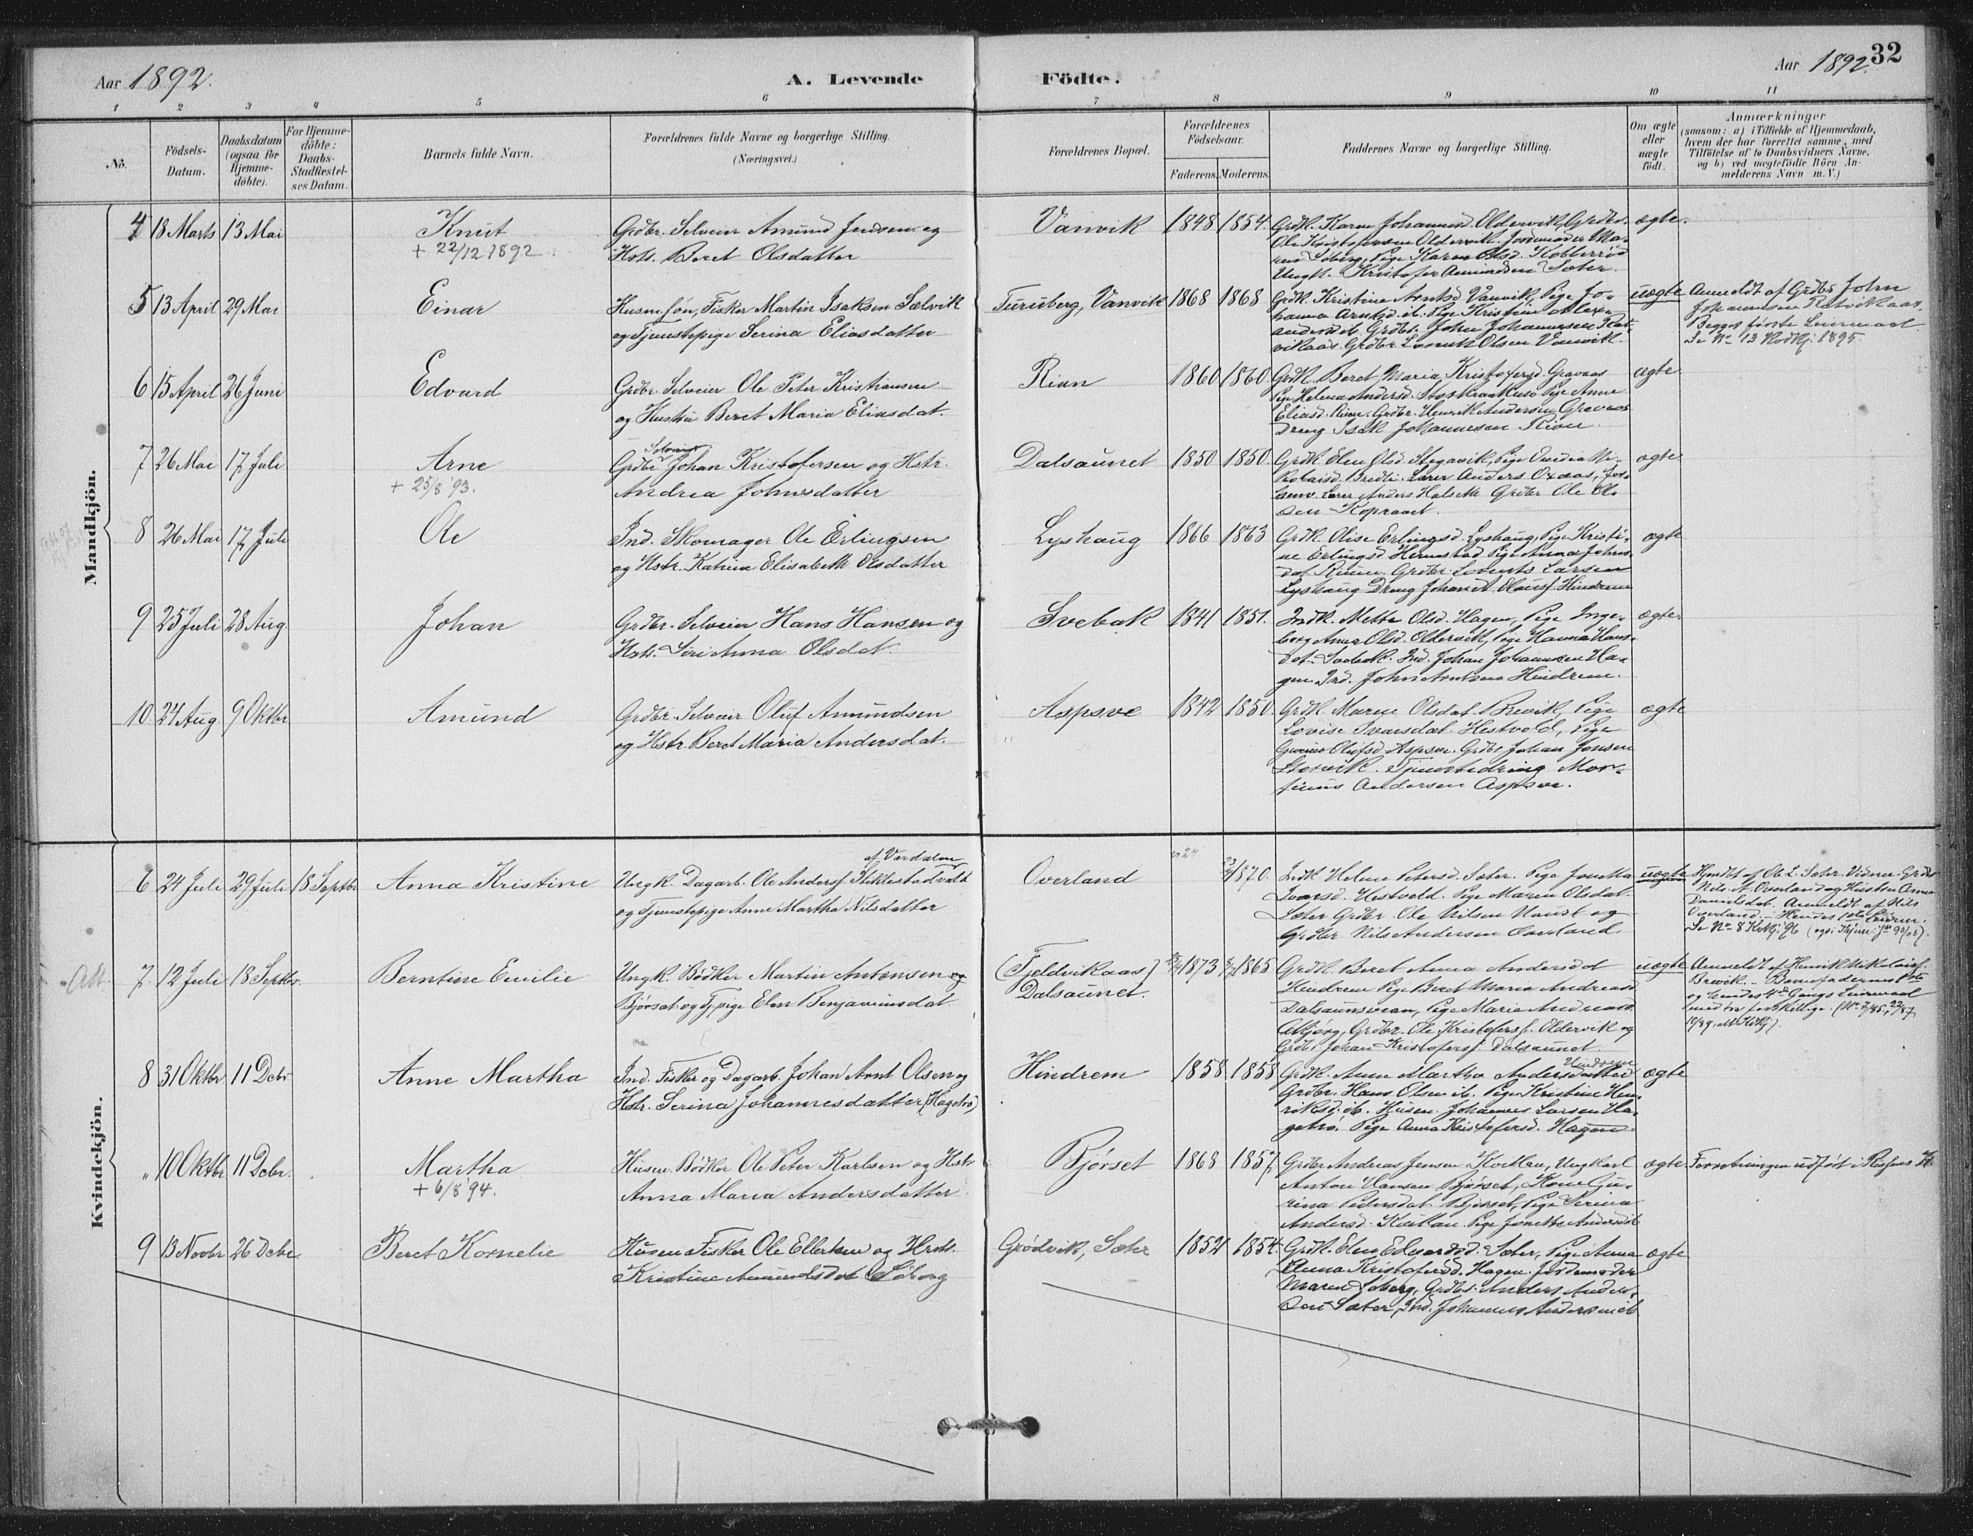 32
Aar 1892.
A. Levende
Födte.
Aar 1892.
1 2 3 4 5 6 7 8 9 10 11
No.
Födsels-Datum.
Daabsdatum (ogsaa for Hjemme-döbte).
For Hjemme-döbte: Daabs-Stadfæstel-ses Datum.
Barnets fulde Navn.
Forældrenes fulde Navne og borgerlige Stilling.
(Næringsvei.)
Forældrenes Bopæl.
Forældrenes Födselsaar.
Faderens. Moderens.
Faddernes Navne og borgerlige Stilling.
Om ægte eller uægte födt.
Anmærkninger
(saasom: a) i Tilfælde af Hjemmedaab,
hvem der har forrettet samme, med
Tilföielse af to Daabsvidners Navne,
og b) ved uægtefödte Börn An-
melderens Navn m. V.)
Mandkjön.
4 18 Marts 13 Mai
Knut
+ 22/12 1892.
Grdbr. Selveier Amund Jensen og
Hstr. Beret Olsdatter
Vanvik 1848 1854.
Grdk. Karen Johannesd. Oldervik, Grdbr.
Ole Kristofersen Oldervik. Jordemoder Ma-
ren Søberg, Pige Karen Olsd.
Ungk. Kristofer Amundsen Sæter.
ægte.
5 13 April 29 Mai
Einar
Husm. søn, Fisker Martin Isaksen Selvik
og Tjenestepige Serina Eliasdatter
Vanvik 1868 1868
Grdk. Kristine Arntsd. Vanvik, Pige Jo-
hanna Arntsd. ib. Pige Kristine Alex-
andersd. ib. Grdbr. John Johannesen Rat-
vikaas. Grdbr. Olsen Vanvik.
uægte
Anmeldt af Grdbr. John
Johannesen Ratvikaas.
Begges første Leiermaal.
Se No. 13 1895.
6 15 April 26 Juni
Edvard
Grdbr. Selveier Ole Peter Kristiansen
og Hustru Beret Maria Eliasdat.
Rian 1860 1860.
Grdk. Beret Maria Kristofersd. Gravaas
Pige Helena Andersd. Pige Anne
Eliasd. Rian. Grdbr. Henrik Andersen Gravaas
Dreng Isak Johannesen Rian.
ægte
7 26 Mai 17 Juli
Arne
+ 25/8 93.
Selveier
Grdbr. Johan Kristofersen og Hstr.
Andrea Johnsdatter
Dalsaunet 1850 1850.
Grdk. Elen Olsd. Pige
Lærer Anders Oxaas,
Lærer Anders Halseth Grdbr. Ole Ol-
sen Kopraaet.
ægte
8 26 Mai 17 Juli
Ole
Ind. Skomager Ole Erlingsen
og Hstr. Katrina Elisabeth Olsdatter
Lyshaug 1866 1863
Grdk. Olise Erlingsd. Lyshaug, Pige Kristi-
ne Erlingsd. Hermstad Pige Anna Johns-
dat. Rian. Grdbr. Lorents Larsen
Lyshaug Dreng Johan Hindrem
ægte
9 25 Juli 28 Aug
Johan
Grdbr. Selveier Hans Hansen og
Hstr. Siri Anna Olsdat.
Svebak 1841 1851.
Indk. Mette Olsd. Hagen, Pige Inge-
borg Anna Olsd. Oldervik, Pige Hanna Hans-
dat. Svebak. Ind. Johan Johannsen Ha-
gen. Ind. John Arntsen Hindrem.
ægte.
10 24 Aug 9 Oktbr
Amund
Grdbr. Selveier Oluf Amundsen
og Hstr. Beret Maria Andersdat.
Aspsve 1842 1850.
Grdk. Maren Olsdat. Brevik, Pige
Lovise Ivarsdat. Hestvold, Pige
Olufsd. Aspsve. Grdbr. Johan Jonsen
Storvik. Tjenestedreng Mor-
Andersen Aspsve.
ægte
Kvindekjön.
6 24 Juli 29 Juli 18 Septbr
Anna Kristine
af Værdalen
Ungk. Dagarb. Ole Anders. Stiklestadvald
og Tjenestepige Anne Martha Nilsdatter
Overland 1870.
Indk. Helene Petersd. Sæter. Pige Jonetta
Ivarsd. Hestvold. Pige Maren Olsdat.
Sæter Grdbr. Ole Nilsen og
Grdbr. Nils Andersen Overland.
uægte
Hjmdt. af Ole L. Sæter. Vidner: Grdbr.
Nils A. Overland og Hustru Anne
Danielsdat. Anmeldt af Nils
Overland. - Hendes 1ste Leierm.
Se No. 8
7 12 Juli 18 Septbr.
Berntine Emilie
Ungk. Bødker Martin Antonsen
Bjørset og Tj. pige Elen Benjaminsdat.
(Fjeldvikaas)
Dalsaunet. 1873 1865
Grdk. Beret Anna Andersdat
Hindrem Pige Beret Maria Andreasd.
Dalsaunet, Pige Maria Andreasd.
Grdbr. Ole Kristofers. Oldervik og
Grdbr. Johan Kristofers. Dalsaunet.
uægte
Anmeldt af Henrik Nikolais.
Brevik. - Barnefaderens 1ste
og hendes 4de Gangs Leiermaal
med tre forskellige.
8 31 Oktbr 11 Decbr
Anne Martha
Ind. Fisker og Dagarb. Johan Arnt Olsen og
Hstr. Serina Johannesdatter (Hagetrø)
Hindrem 1858. 1858
Hindrem
Grdk. Anne Martha Andersdatter
Grdbr. Hans Olsen ib. Pige Kristine Hen-
riksd. ib. Husm. Johannes Larsen Ha-
getrø. Pige Anna Kristofersd. Hagen.
ægte
" 10 Oktbr 11 Decbr.
Martha
+ 6/8 94.
Husm. Bødker Ole Peter Karlsen og Hstr
Anna Maria Andersdatter.
Bjørset 1868 1857.
Grdbr. Andreas Jensen Kvitlan, Ungkarl
Anton Hansen Bjørset, Kone Gu-
rina Petersdat. Bjørset, Pige Serina
Andersd. Kvitlan Pige Jonette Andersd.
ægte
Forretningen udført i Rissens K.
9 13 Novbr 26 Decbr.
Beret Kornelie
Husm. Fisker Ole Ellertsen og Hstr.
Kristine Amundsdat. Søberg
Grødvik, Sæter 1852 1854.
Grdk. Elen Edvardsd. Sæter, Pige Anna
Anna Kristofersd. Hagen. Jordemoder
Maren Søberg, Grdbr. Anders Ander-
sen Sæter, Ind. Johannes Andersen ib.
ægte